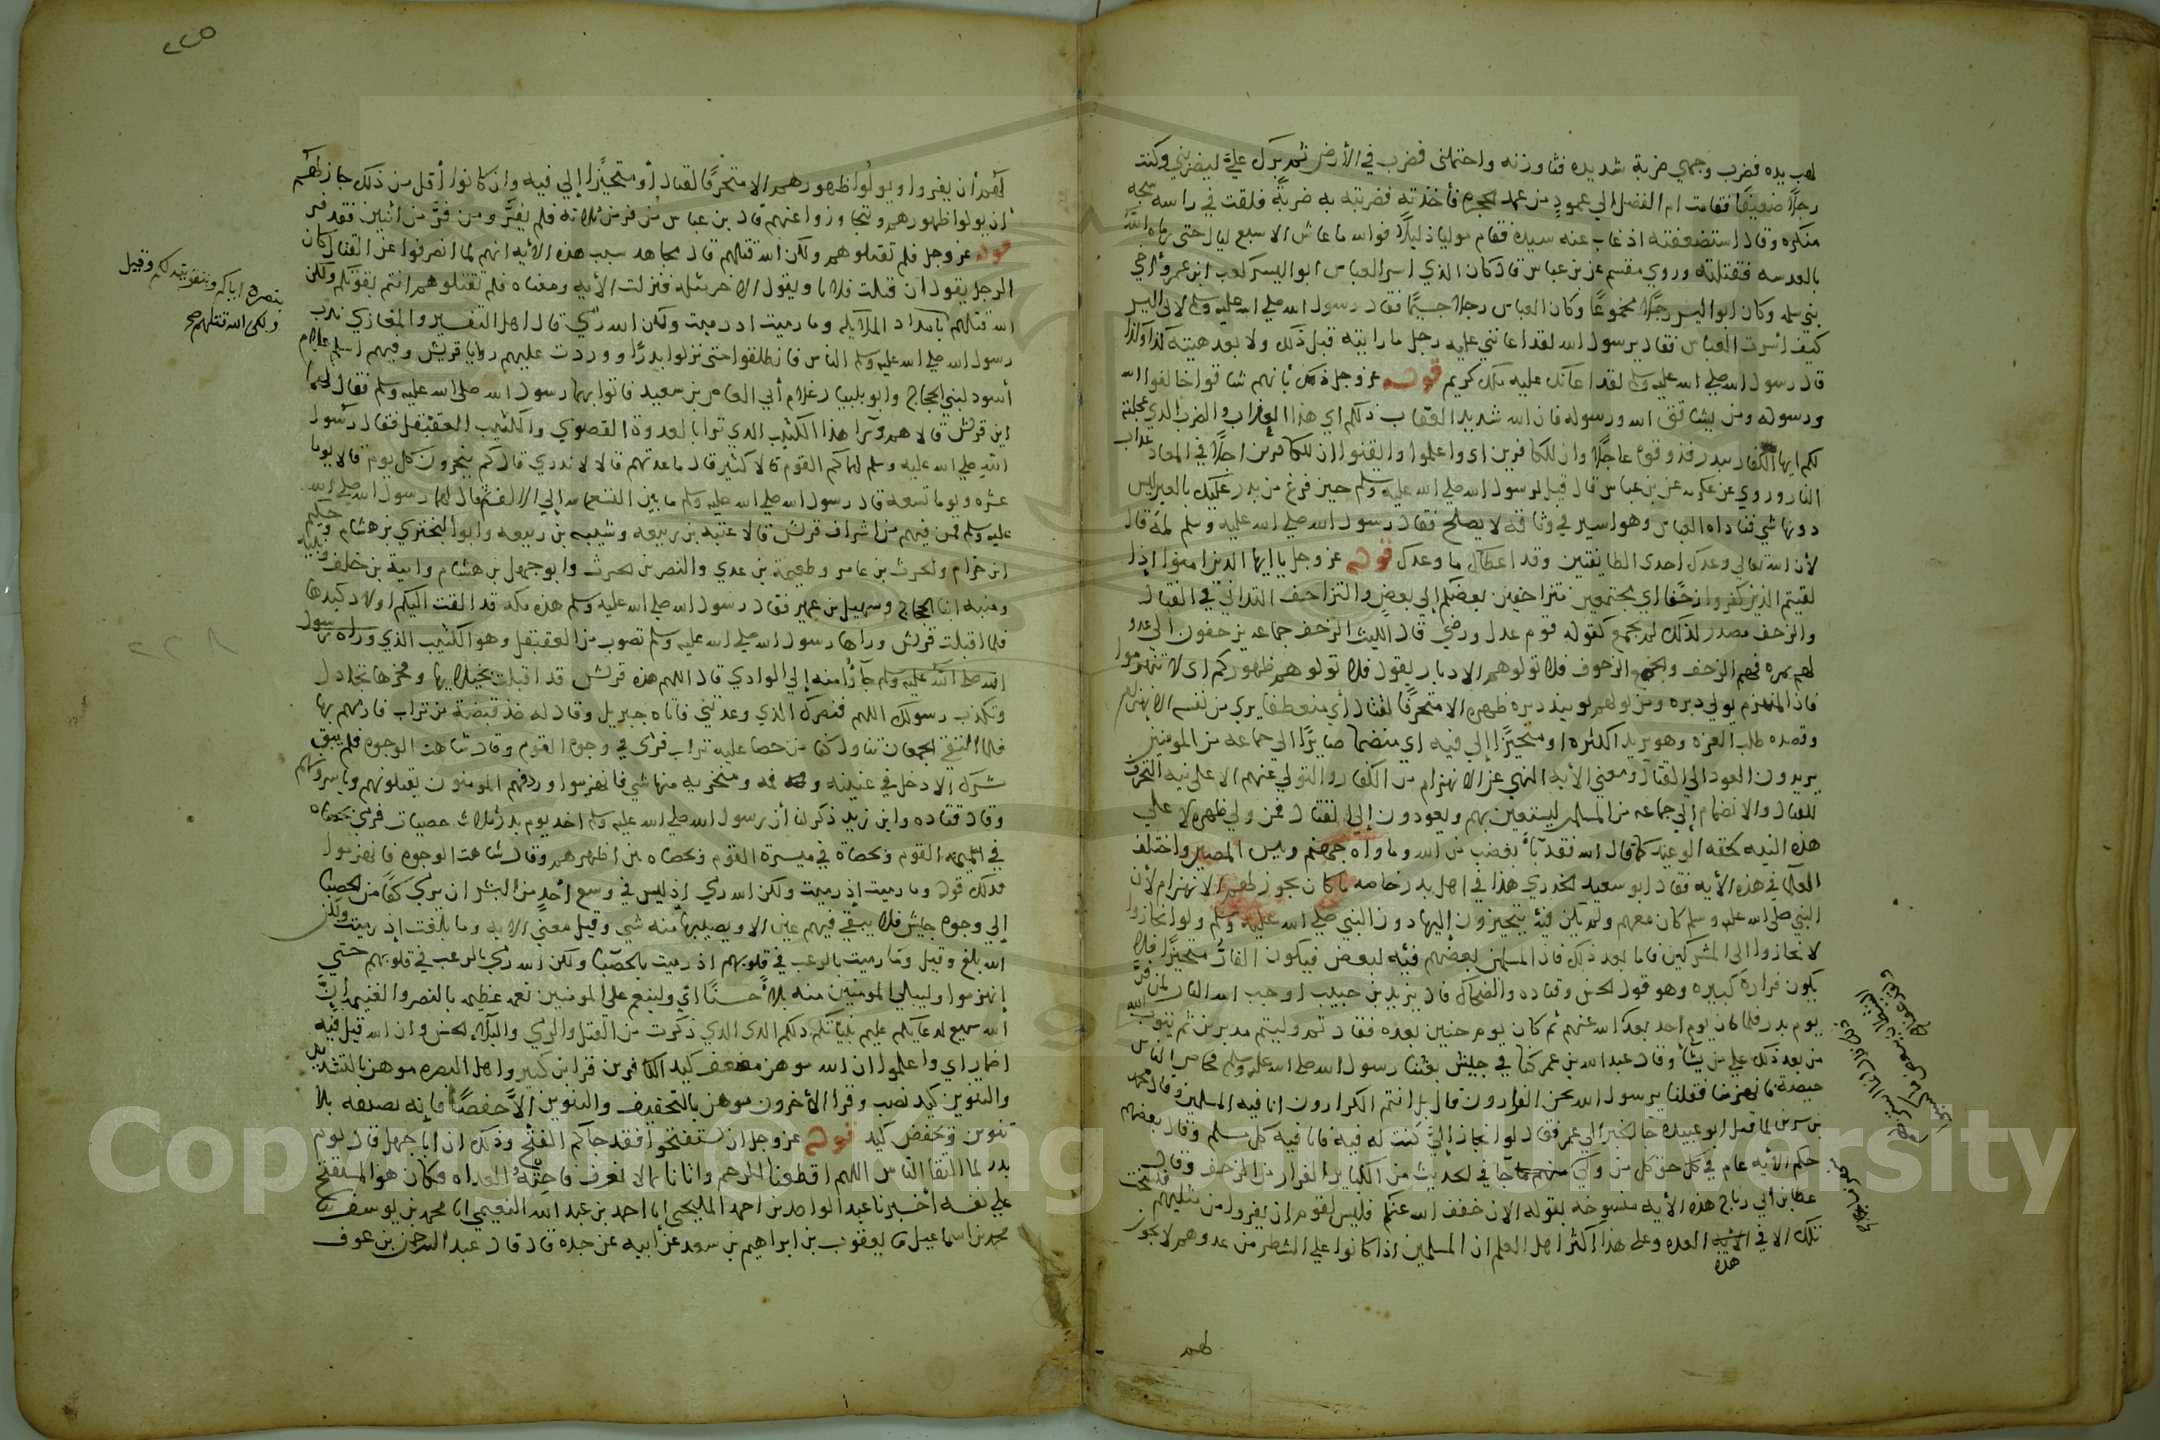 لهب يده فضرب وجهي ضربة شديده فثاورته واحتملني فضرب في الأرض ثم برك علي ليضربني وكنت
رجلا ضعيفا فقامت ام الفضل الي عمود من عمد الحجره فأخذته فضربته به ضربة فلقت في راسه شجه
منكره وقال استضعفته اذ غاب عنه سيده فقام موليا ذليلا فوالله ما عاش الا سبع ليال حتى رماه الله
بالعدسه فقتلته وروي مقسم عن بن عباس قال كان الذي اسر العباس ابو اليسر كعب ابن عمرو أخي
بني سلمه وكان ابو اليسر رجلا مجموعا وكان العباس رجلا جسيما فقال رسول الله صلي الله عليه وسلم لابي اليسر
كيف اسرت العباس فقال يرسول الله لقد اعانني عليه رجل ما رايته قبل ذلك ولا بعد هيئته كذا وكذا
قال رسول الله صلي الله عليه وسلم لقد اعانك عليه ملك كريم قوله عز وجل ذلك بأنهم شاقوا خالفوا الله
ورسوله ومن يشاقق الله ورسوله فان الله شديد العقاب ذلكم اي هذا العذاب والضرب الذي عجلته
لكم ايها الكفار ببدر فذوقوه عاجلا وان للكافرين اي واعلموا وايقنوا ان للكافرين اجلا في المعاد عذاب
النار وروي عن عكرمه عن بن عباس قال قيل لرسول الله صلي الله عليه وسلم حين فرغ من بدر عليك بالعير ليس
دونها شي فناداه العباس وهو اسير في وثاقه لا يصلح فقال رسول الله صلي الله عليه وسلم لمه قال
لأن الله تعالي وعدك احدى الطايفتين وقد اعطاك ما وعدك قوله عز وجل ياايها الذين امنوا اذا
لقيتم الذين كفروا زحفا اي مجتمعين متزاحفين بعضكم إلي بعض والتزاحف التداني في القتال
والزحف مصدر لذلك لم يجمع كقوله قوم عدل ورضي قال الليث الزحف جماعه يزحفون الي عدو
لهم بمره فهم الزحف والجمع الزحوف فلا تولوهم الادبار يقول فلا تولوهم ظهوركم اي لا تنهزموا
فان المنهزم يولي دبره ومن يولهم يوميذ دبره ظهره الا متحرفا لقتال أي منعطفا يري من نفسه الانهزام
وقصده طلب الغره وهو يريد الكره او متحيزا إلي فيه اي منضما صايرا الي جماعه من المومنين
يريدون العود الي القتال ومعني الأيه النهي عن الانهزام من الكفار والتولي عنهم الا علي نيه التحرف
للقتال والانضمام إلي جماعه من المسلمين ليستعين بهم ويعودون إلي القتال فمن ولي ظهره لا علي
هذه النيه لحقه الوعيد كما قال الله فقد بآء بغضب من الله وماواه جهنم وبيس المصير واختلف
العلما في هذه الأيه فقال ابو سعيد الخدري هذا في اهل بدر خاصه ما كان يجوز لهم الانهزام لأن
النبي صلي الله عليه وسلم كان معهم ولم يكن فيه يتحيزون إليها دون النبي صلي الله عليه وسلم ولو انحازوا
لانحازوا الى المشركين فاما بعد ذلك فان المسلمين بعضهم فيه لبعض فيكون الفار متحيزا فلا
يكون فراره كبيره وهو قول الحسن وقتاده والضحاك قال يزيد بن حبيب اوجب الله النار لمن فر
يوم بدر فلما كان يوم احد بعدك الله عنهم ثم كان يوم حنين بعده فقال ثم وليتم مدبرين ثم يتوب الله
من بعد ذلك علي من يشآ وقال عبدالله بن عمر كنا في جيش بعثنا رسول الله صلي الله عليه وسلم فحاص الناس
حيصة فانهزمنا فقلنا يرسول الله نحن الفرارون قال بل انتم الكرارون انا فيه المسلمين وقال محمد
بن سيرين لما قتل ابو عبيده جا الخبر الي عمر فقال لو انحاز إلي كنت له فيه فانا فيه كل مسلم وقال بعضهم
حكم الأيه عام في كل حق كل من ولي منهزما جا في الحديث من الكباير الفرار من الزحف وقال
عطا بن أبي رباح هذه الأيه منسوخه بقوله الان خفف الله عنكم فليس لقوم ان يفروا من مثليهم فنسخت
تلك الا في هذه العده وعلى هذا اكثر اهل العلم ان المسلمين اذا كانوا علي الشطر من عدوهم لا يجوز
لهم
٢٢٥
لهم أن يفروا ويولوا ظهورهم الا متحرفا لقتال أو متحيزا إلي فيه وان كانوا أقل من ذلك جاز لهم
ان يولوا ظهورهم وينحازوا عنهم قال بن عباس من فر من ثلاثه فلم يفر ومن فر من اثنين فقد فر
قوله عز وجل فلم تقتلوهم ولكن الله قتلهم قال مجاهد سبب هذه الأيه انهم لما انصرفوا عن القتال كان
الرجل يقول ان قتلت فلانا ويقول الاخر مثله فنزلت الأيه ومعناه فلم تقتلوهم انتم بقوتكم ولكن
الله قتلهم بامداد الملايكه وما رميت اذ رميت ولكن الله رمي قال اهل التفسير والمغازي ندب
رسول الله صلي الله عليه وسلم الناس فانطلقوا حتى نزلوا بدرا ووردت عليهم روايا قريش وفيهم اسلم غلام
أسود لبني الحجاج وابو يسار غلام أبي العاص بن سعيد فاتوا بهما رسول الله صلي الله عليه وسلم فقال لهما
اين قريش قالا هم ورا هذا الكثيب الذي ترا بالعدوة القصوي والكثيب العقنقل فقال رسول
الله صلي الله عليه وسلم لهما كم القوم قالا كثير قال ما عدتهم قالا لا ندري قال كم ينحرون كل يوم قالا يوما
عشره ويوما تسعه قال رسول الله صلي الله عليه وسلم ما بين التسعمايه إلي الالف ثم قال لهما رسول الله صلي الله
عليه وسلم فمن فيهم من اشراف قريش قالا عتبه بن ربيعه وشيبه بن ربيعه وابو البختري بن هشام وحكيم
ابن حزام والحرث بن عامر وطعيمة بن عدي والنضر بن الحرث وابو جهل بن هشام وامية بن خلف ونبيه
ومنبه ابنا الحجاج وسهيل بن عمير فقال رسول الله صلي الله عليه وسلم هذه مكه قد القت اليكم اولاد كبدها
فلما اقبلت قريش وراها رسول الله صلي الله عليه وسلم تصوب من العقنقل وهو الكثيب الذي وراه رسول
الله صلي الله عليه وسلم جآؤا منه إلي الوادي قال اللهم هذه قريش قد اقبلت بخيلايها وفخرها تجادل
وتكذب رسولك اللهم فنصرك الذي وعدتني فاتاه جبريل وقال له خذ قبضة من تراب فارمهم بها
فلما التقي الجمعان تناول كفا من حصا عليه تراب فرمي في وجوه القوم وقال شاهت الوجوه فلم يبق
مشرك الا دخل في عينيه وفمه ومنخريه منها شي فانهزموا وردفهم المومنون يقتلونهم وياسرونهم
وقال قتاده وابن زيد ذكر لنا أن رسول الله صلي الله عليه وسلم اخذ يوم بدر ثلاث حصيات فرمي بحصاه
في ميمنه القوم وبحصاة في ميسرة القوم وبحصاه بين اظهرهم وقال شاهت الوجوه فانهزموا
فذلك قوله وما رميت إذ رميت ولكن الله رمي إذ ليس في وسع أحد من البشر ان يرمي كفا من الحصبا
إلي وجوه جيش فلا يبقي فيهم عين الا ويصيبها منه شي وقيل معني الايه وما بلغت إذ رميت ولكن
الله بلغ وقيل وما رميت بالرعب في قلوبهم اذ رميت بالحصبا ولكن الله رمي بالرعب في قلوبهم حتي
إنهزموا وليبلي المومنين منه بلآ حسنا اي ولينعم علي المومنين نعمه عظيمه بالنصر والغنيمه إن
الله سميع لدعايكم عليم بنياتكم ذلكم الذي الذي ذكرت من القتل والرمي والبلآ الحسن وان الله قيل فيه
اضمار اي واعلموا ان الله موهن مضعف كيد الكافرين قرا بن كثير واهل البصره موهن بالتشديد
والتنوين كيد نصب وقرا الأخرون موهن بالتخفيف والتنوين إلا حفصا فإنه يضيفه بلا
تنوين ويخفض كيد قوله عز وجل ان تستفتحوا فقد جاكم الفتح وذلك ان ابا جهل قال يوم
بدر لما التقا الناس اللهم اقطعنا للرحم واتانا بما لا نعرف فاحنه الغداه فكان هو المستفتح
علي نفسه أخبرنا عبد الواحد بن احمد المليحي انا احمد بن عبد الله النعيمي انا محمد بن يوسف ثنا
محمد بن اسماعيل ثنا يعقوب بن ابراهيم بن سعد عن أبيه عن جده قال قال عبد الرحمن بن عوف
بنصره اياكم وبتقويته لكم وقيل
ولكن الله قتلهم صح